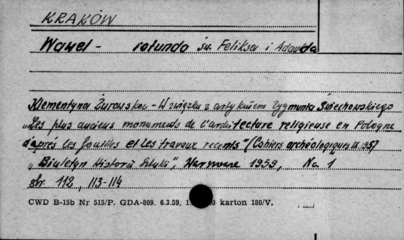 KRAKÓW
Wawel - rotunda św. Feliksa i Adaukta
Klementyna Żurowska - W związku z artykułem Zygmunta Świechowskiego
„Les plus anciens monuments de l'architecture religieuse en Pologne
d'après les fouilles et les travaux recents" (Cahiers archéologiques IX 1957
„Biuletyn Historii Sztuki", Warszawa 1959, No. 1
str. 112, 113-114
CWD B-15b Nr 515/P. GDA-809. 6.3.59, karton 180/V.